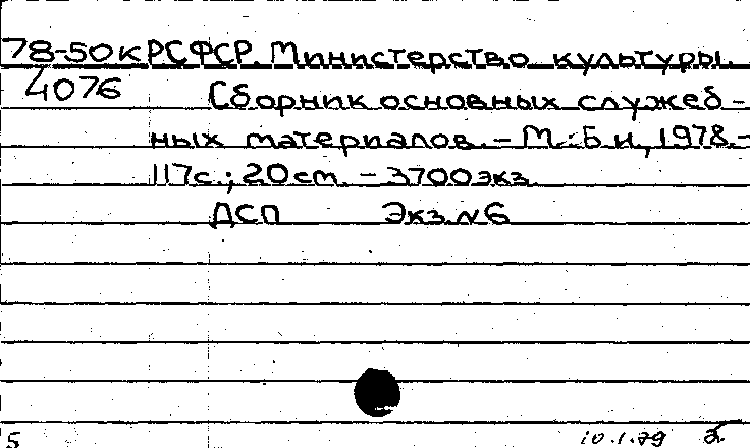 78-50к РСФСР. Министерство культуры.
4076 Сборник основных служеб-
ных материалов. - М.: Б и, 1978.-
117с.; 20 cm. - 3700 экз.
ДСП Экз. № 6
5 10.1.79